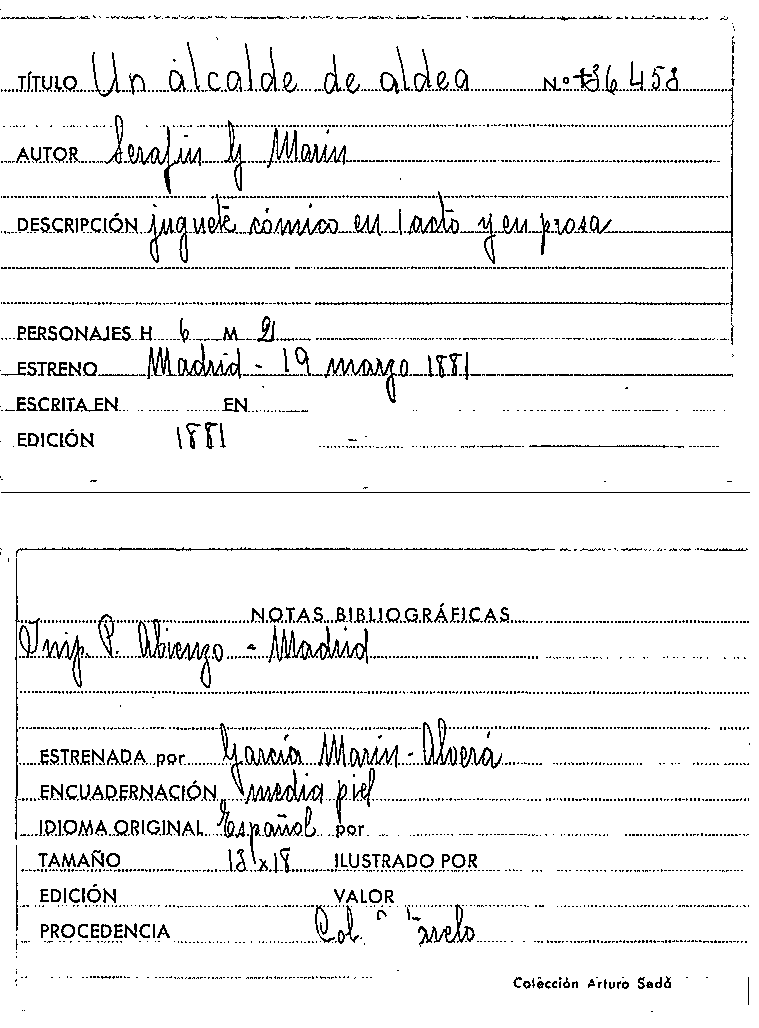 TÍTULO Un alcalde de aldea N.º 36 453
AUTOR Serafín G Marin
DESCRIPCIÓN juguete cómico en 1 acto y en prosa
PERSONAJES H 6 M 2
ESTRENO Madrid - 19 marzo 1881
ESCRITA EN EN
EDICIÓN 1881
NOTAS BIBLIOGRÁFICAS
Imp. P. Abienzo - Madrid
ESTRENADA por García Marin - Alverá
ENCUADERNACIÓN media piel
IDIOMA ORIGINAL Español por
TAMAÑO 13x18 ILUSTRADO POR
EDICIÓN VALOR
PROCEDENCIA Col.
Colección Arturo Sedó